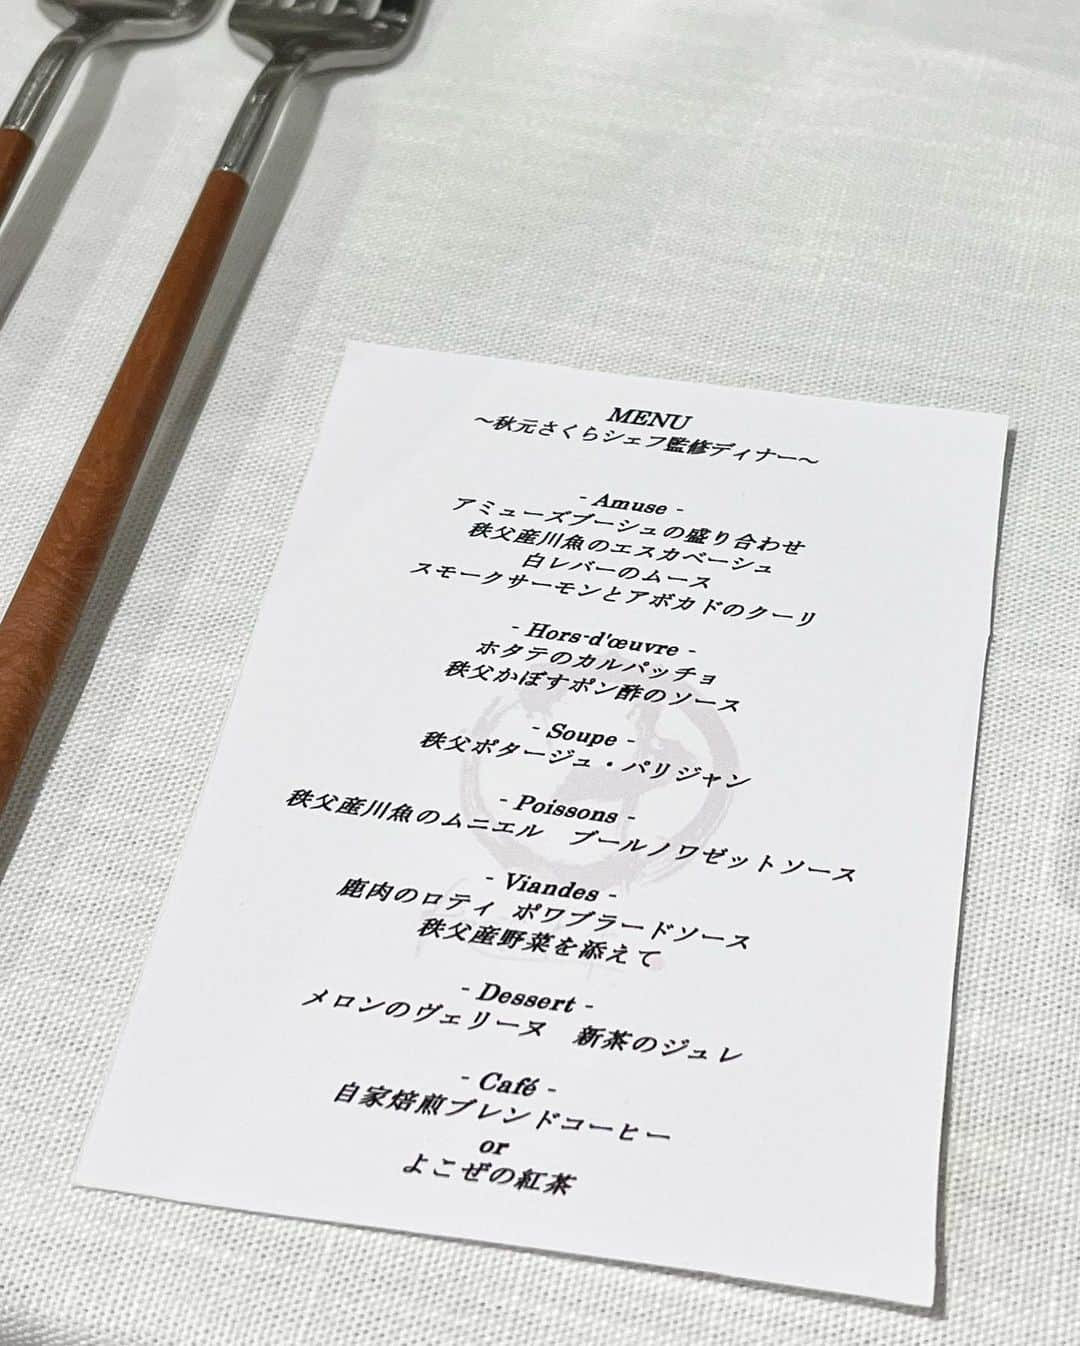 MENU
～秋元さくらシェフ監修ディナー～
- Amuse -
アミューズブーシュの盛り合わせ
秩父産川魚のエスカベーシュ
白レバーのムース
スモークサーモンとアボカドのクーリ
- Hors-d'œuvre -
ホタテのカルパッチョ
秩父かぼすポン酢のソース
- Soupe -
秩父ポタージュ・パリジャン
- Poissons -
秩父産川魚のムニエル　ブールノワゼットソース
- Viandes -
鹿肉のロティ ポワブラードソース
秩父産野菜を添えて
- Dessert -
メロンのヴェリーヌ　新茶のジュレ
- Café -
自家焙煎ブレンドコーヒー
or
よこぜの紅茶